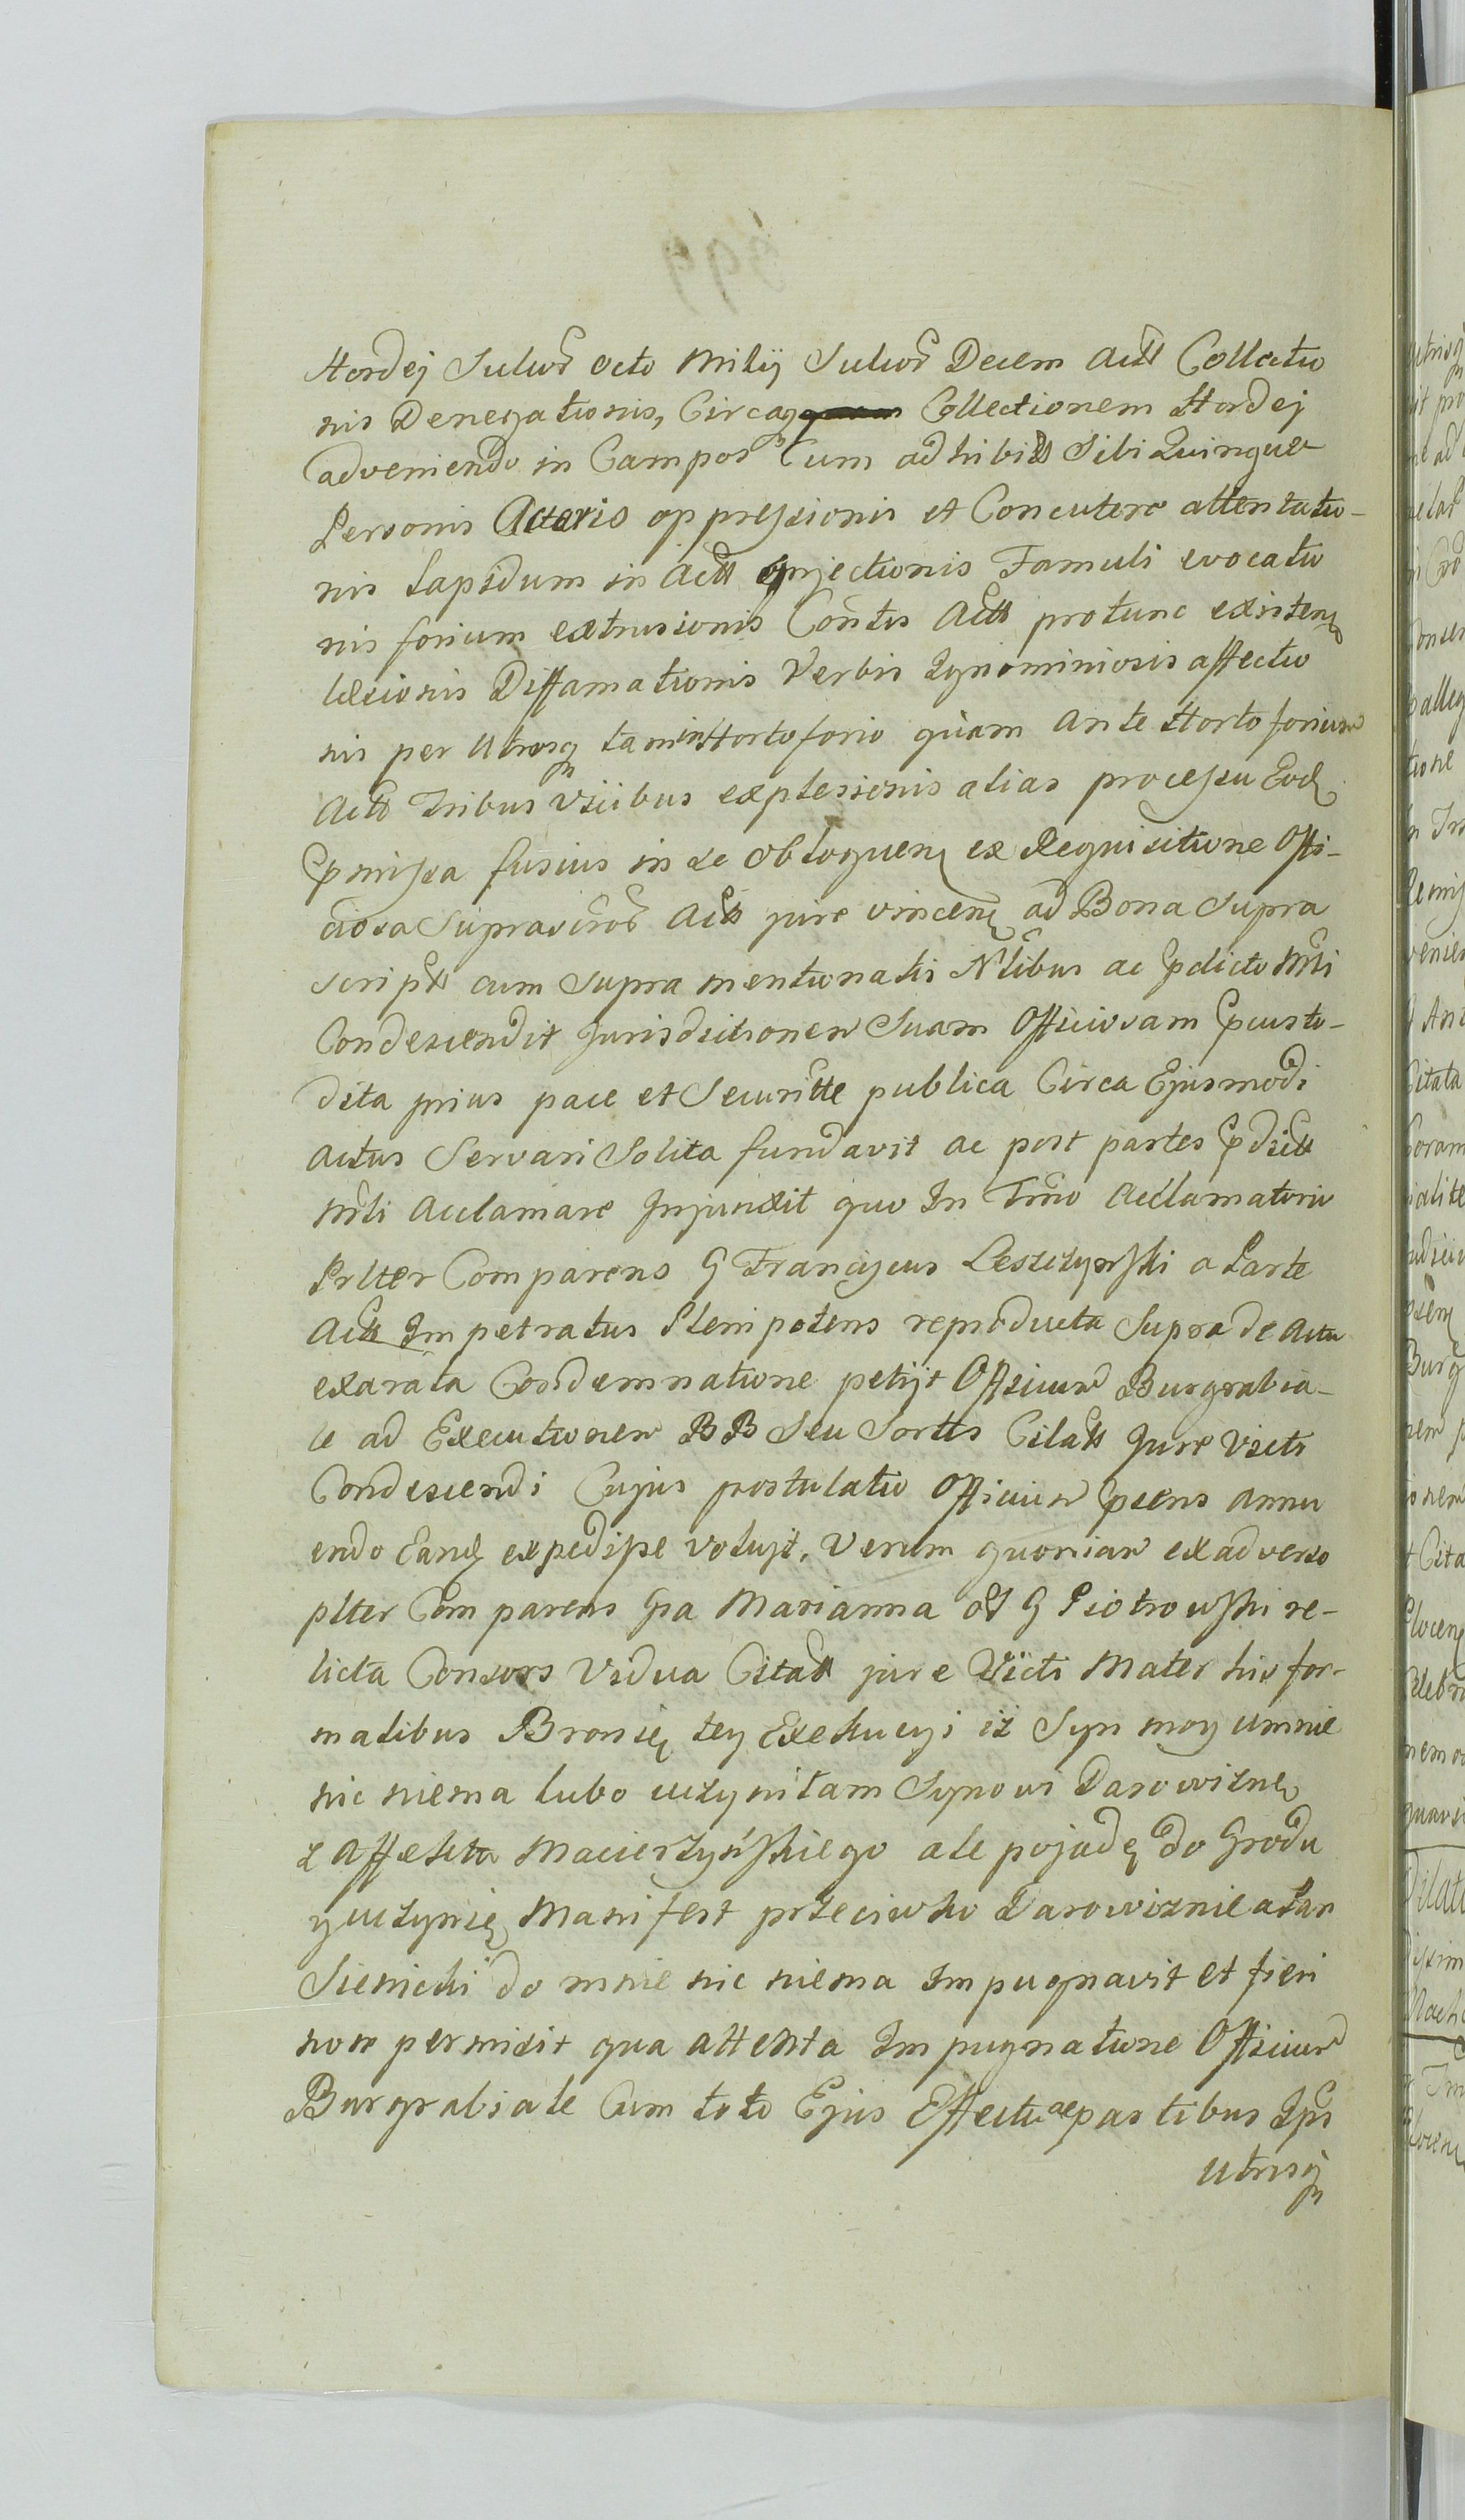 Hordej Sulcor octo Milij Sulcor Decem Actt Collectio
nis Denegationis, Circaq Collectionem Hordej
adveniendo in Campos Cum adhibitt Sibi Quinque
Personis Actoris oppressionis et Concutere attentatio-
nis Lapidum in Actt injectionis Famuli evocatio
nis forium extrusionis Contis Actt protunc existen
læsionis Diffamationis Verbis Ignominiosis affectio
nis per utrosq tam in Hortoforio quam ante Hortoforium
Actt Tribus vicibus explesionis alias processu Eod
Pmissa fusius in se obloquen ex Requisitione Offi-
ciosa Suprascror Actt jure vincen ad Bona Supra
script cum Supra mentionatis Nlibus ac Pdicto Mli
Condescendit Jurisdictionem Suam Officiosam Pcusto-
dita prius pace et Securitte publica Circa Ejusmodi
actus Servari Solita fundavit ac post partes Pdictt
Mli Acclamare Injunxit quo In Tmno Acclamatorio
Prlter Comparens G Franciscus Leszczynski a Parte
Actt Impetratus Plenipotens reproducta Supra de Actu
exarata Condemnatione petijt Officium Burgrabia-
le ad Executionem BB Seu Sortis Citatt Jure Victi
Condescendi Cujus postulatio Officium Psens annu
endo Eand expedisse voluit. Verum quoniam ex adverso
plter Comparens Gsa Marianna olt G Piotrowski re-
licta Consors Vidua Citatt jure Victi Mater his for-
malibus Bronię tey Exekucyi iż Syn moy umnie
nic niema lubo uczyniłam Synowi Darowiznę
z Affektu Macierzyńskiego ale pojadę do Grodu
y uczynię Manifest przeciwko Darowiznie a Pan
Sienicki do mnie nic niema Impugnavit et fieri
non permisit qua attenta Impugnatione Officium
Burgrabiale Cum toto Ejus Effectu ac partibus Ips
utrisq